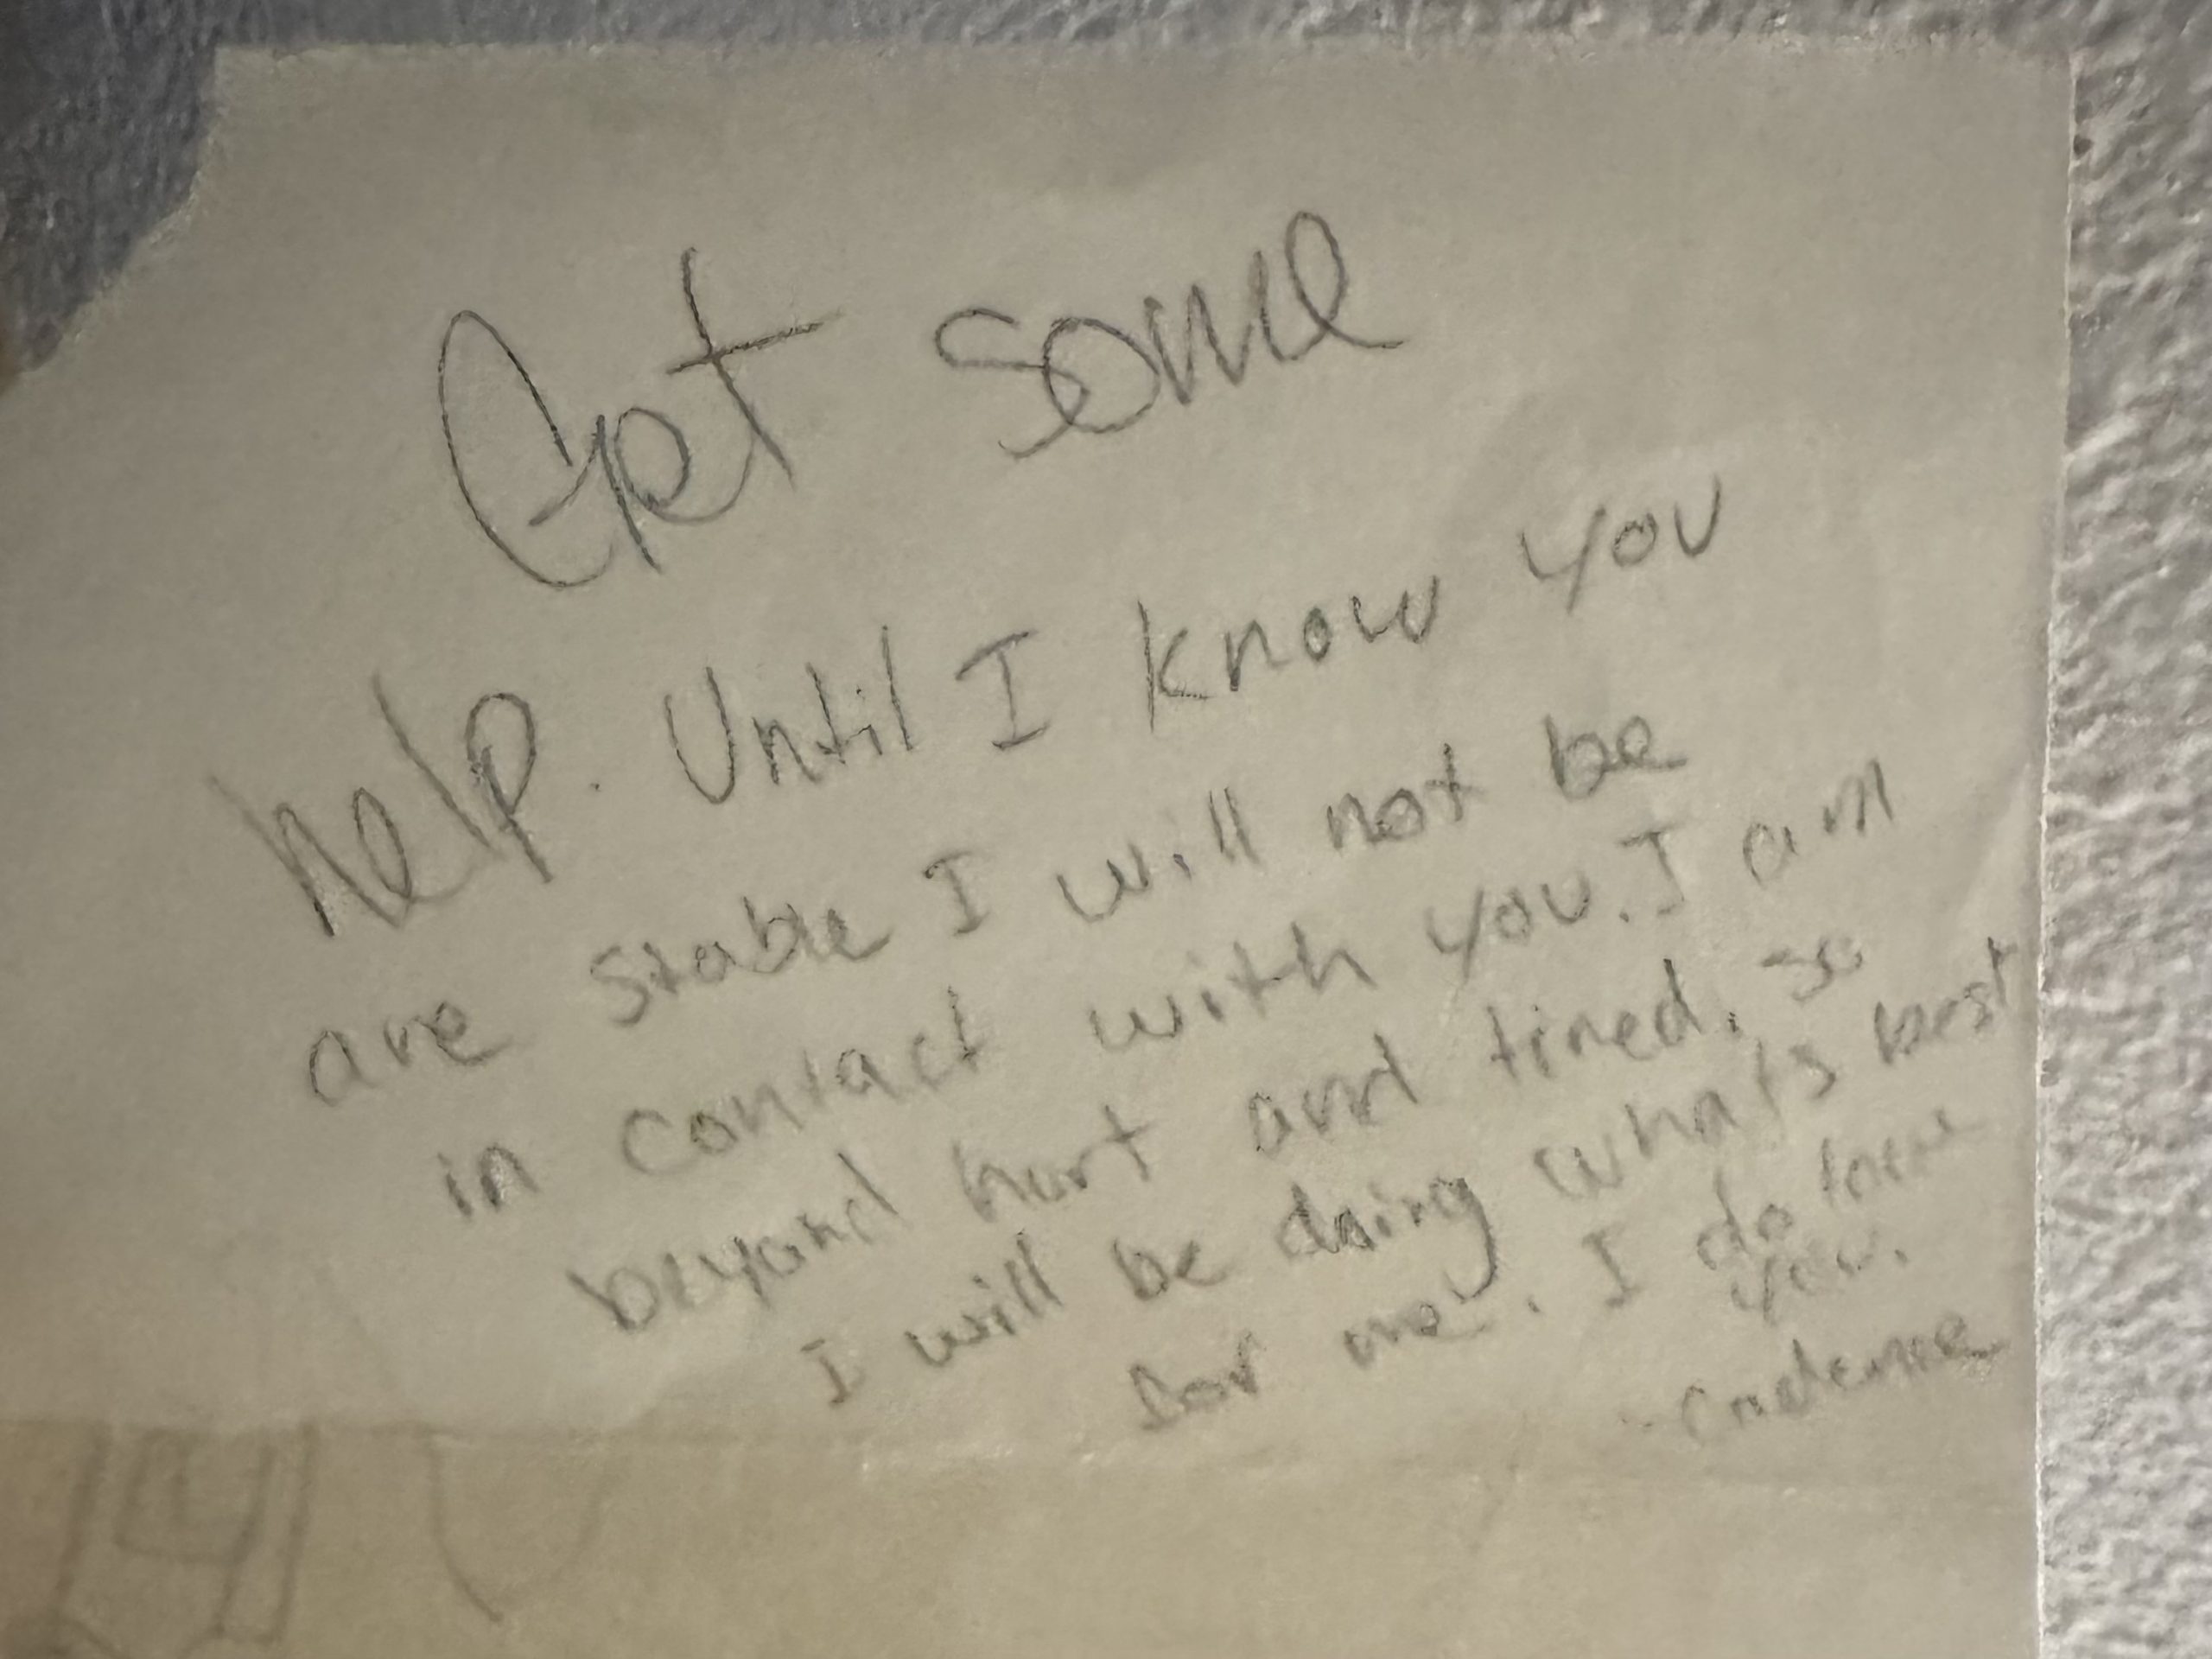 Get some
help. Until I know you
are stable I will not be
in contact with you. I am
beyond hurt and tired. so
I will be doing what's best
for me. I do love
you.